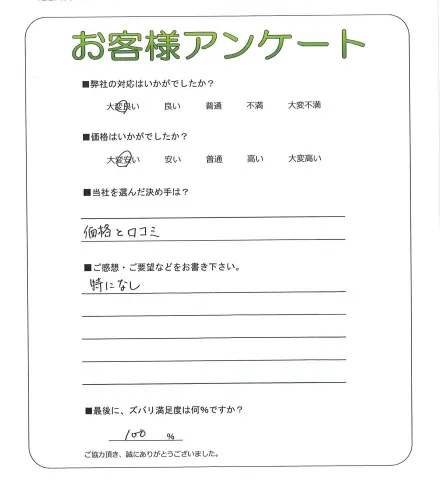 お客様アンケート
■弊社の対応はいかがでしたか？
大変良い 良い 普通 不満 大変不満
■価格はいかがでしたか？
大変安い 安い 普通 高い 大変高い
■当社を選んだ決め手は？
価格と口コミ
■ご感想・ご要望などをお書き下さい。
特になし
■最後に、ズバリ満足度は何％ですか？
100 ％
ご協力頂き、誠にありがとうございました。